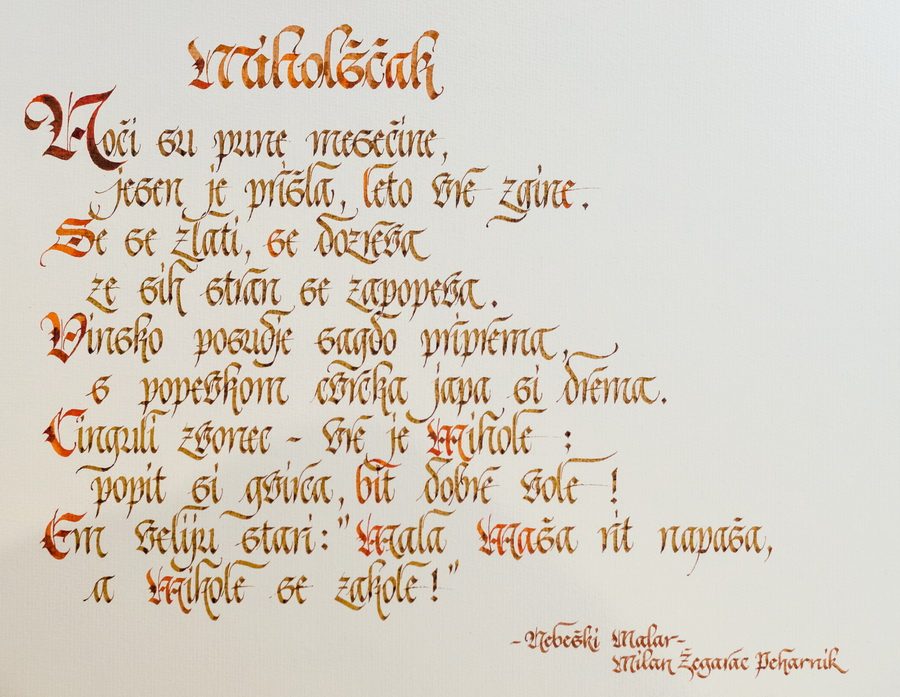 Miholščak
Noči su pune mesečine,
jesen je prišla, leto vre zgine.
Se se zlati, se dozreva
ze sih stran se zapopeva.
Vinsko posudje sagdo priprema,
s popevkom cvrčka japa si drema.
Cinguli zvonec - vre je Mihole ;
popit si gvirca, bit dobre vole !
Em veliju stari: "Mala Maša rit napaša,
a Mihole se zakole!"
-Nebeški Malar-
Milan Žegarac Peharnik